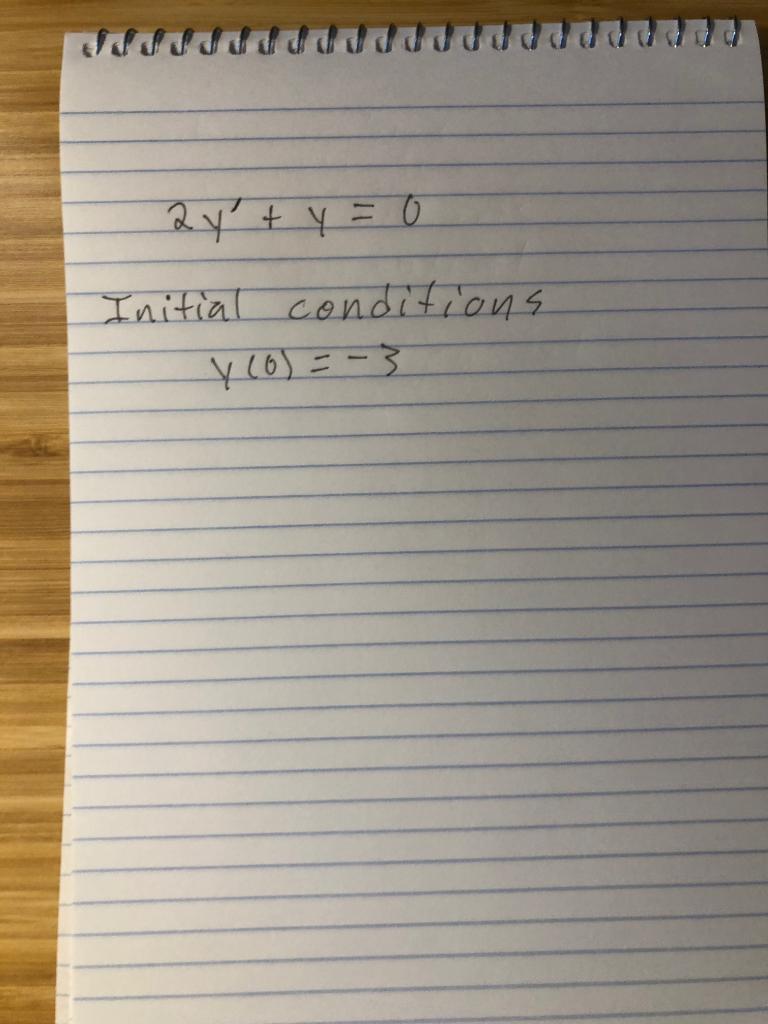 2y' + y = 0
Initial conditions
y(0) = -3